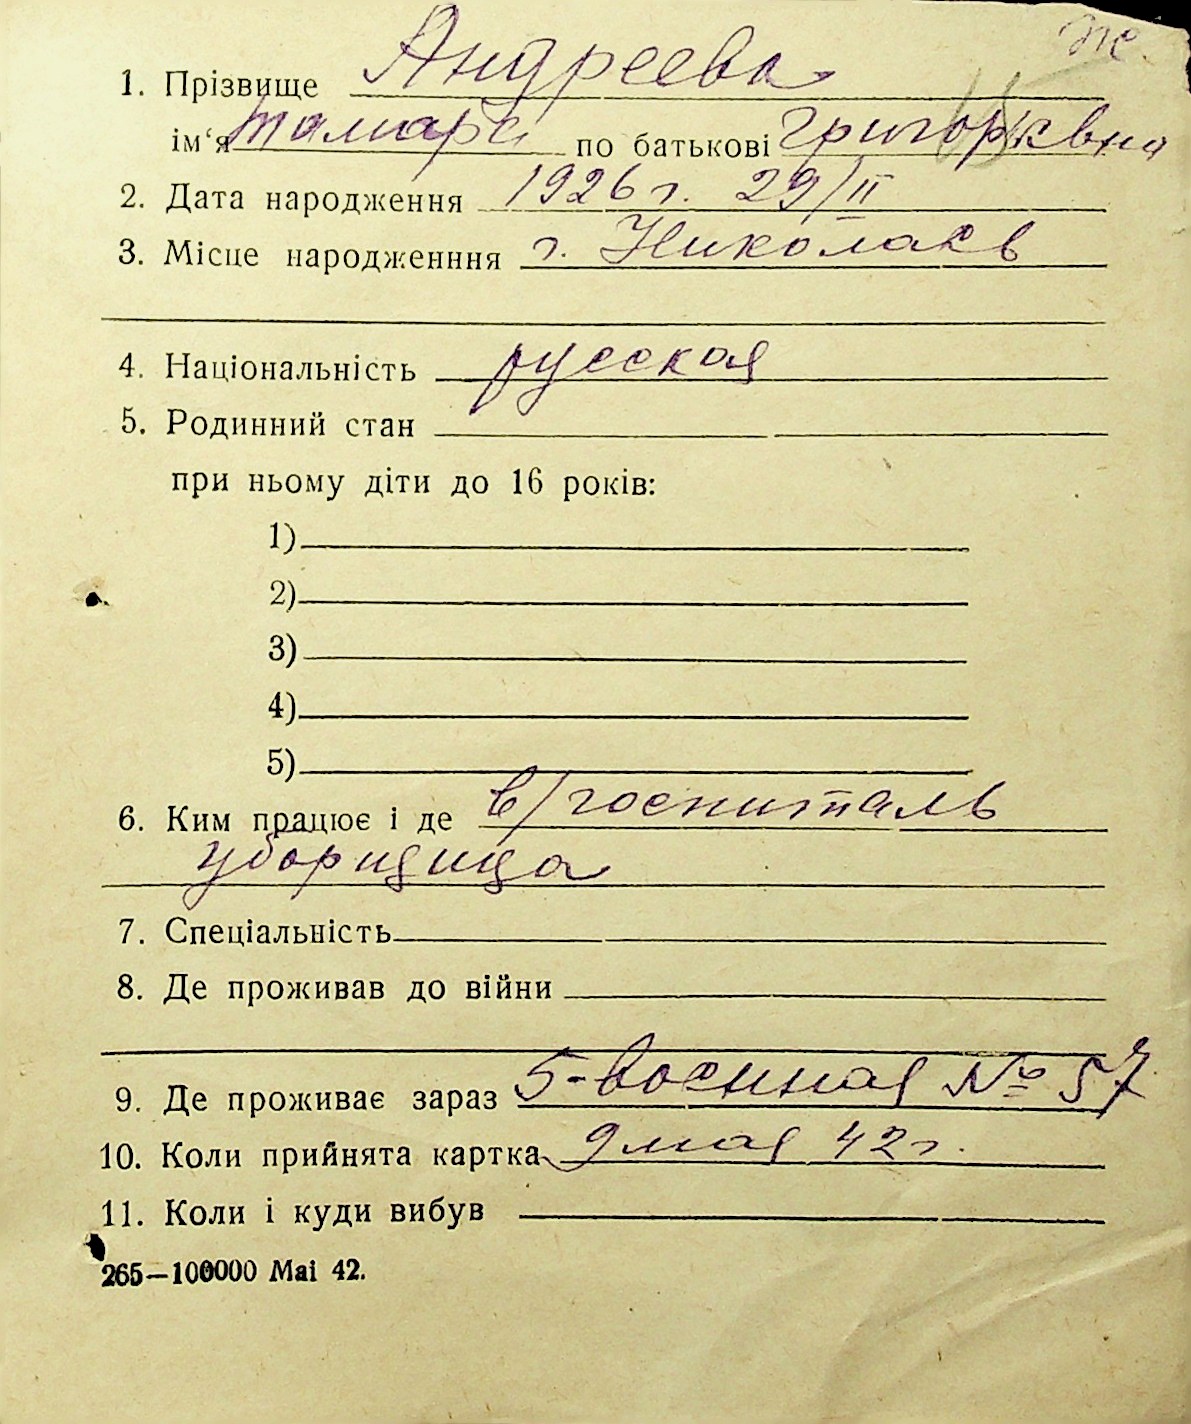 1. Прізвище Андреева
ім‘я Тамара по батькові Григорьевна
2. Дата народження 1926 г. 29/II
3. Місце народженння г. Николаев
4. Національність русская
5. Родинний стан
при ньому діти до 16 років:
1)
2)
3)
4)
5)
6. Ким працює і де в/госпиталь
уборщица
7. Спеціальність
8. Де проживав до війни
9. Де проживає зараз 5-Военная № 57
10. Коли прийнята картка 9 мая 42 г.
11. Коли і куди вибув
265—100000 Mai 42.